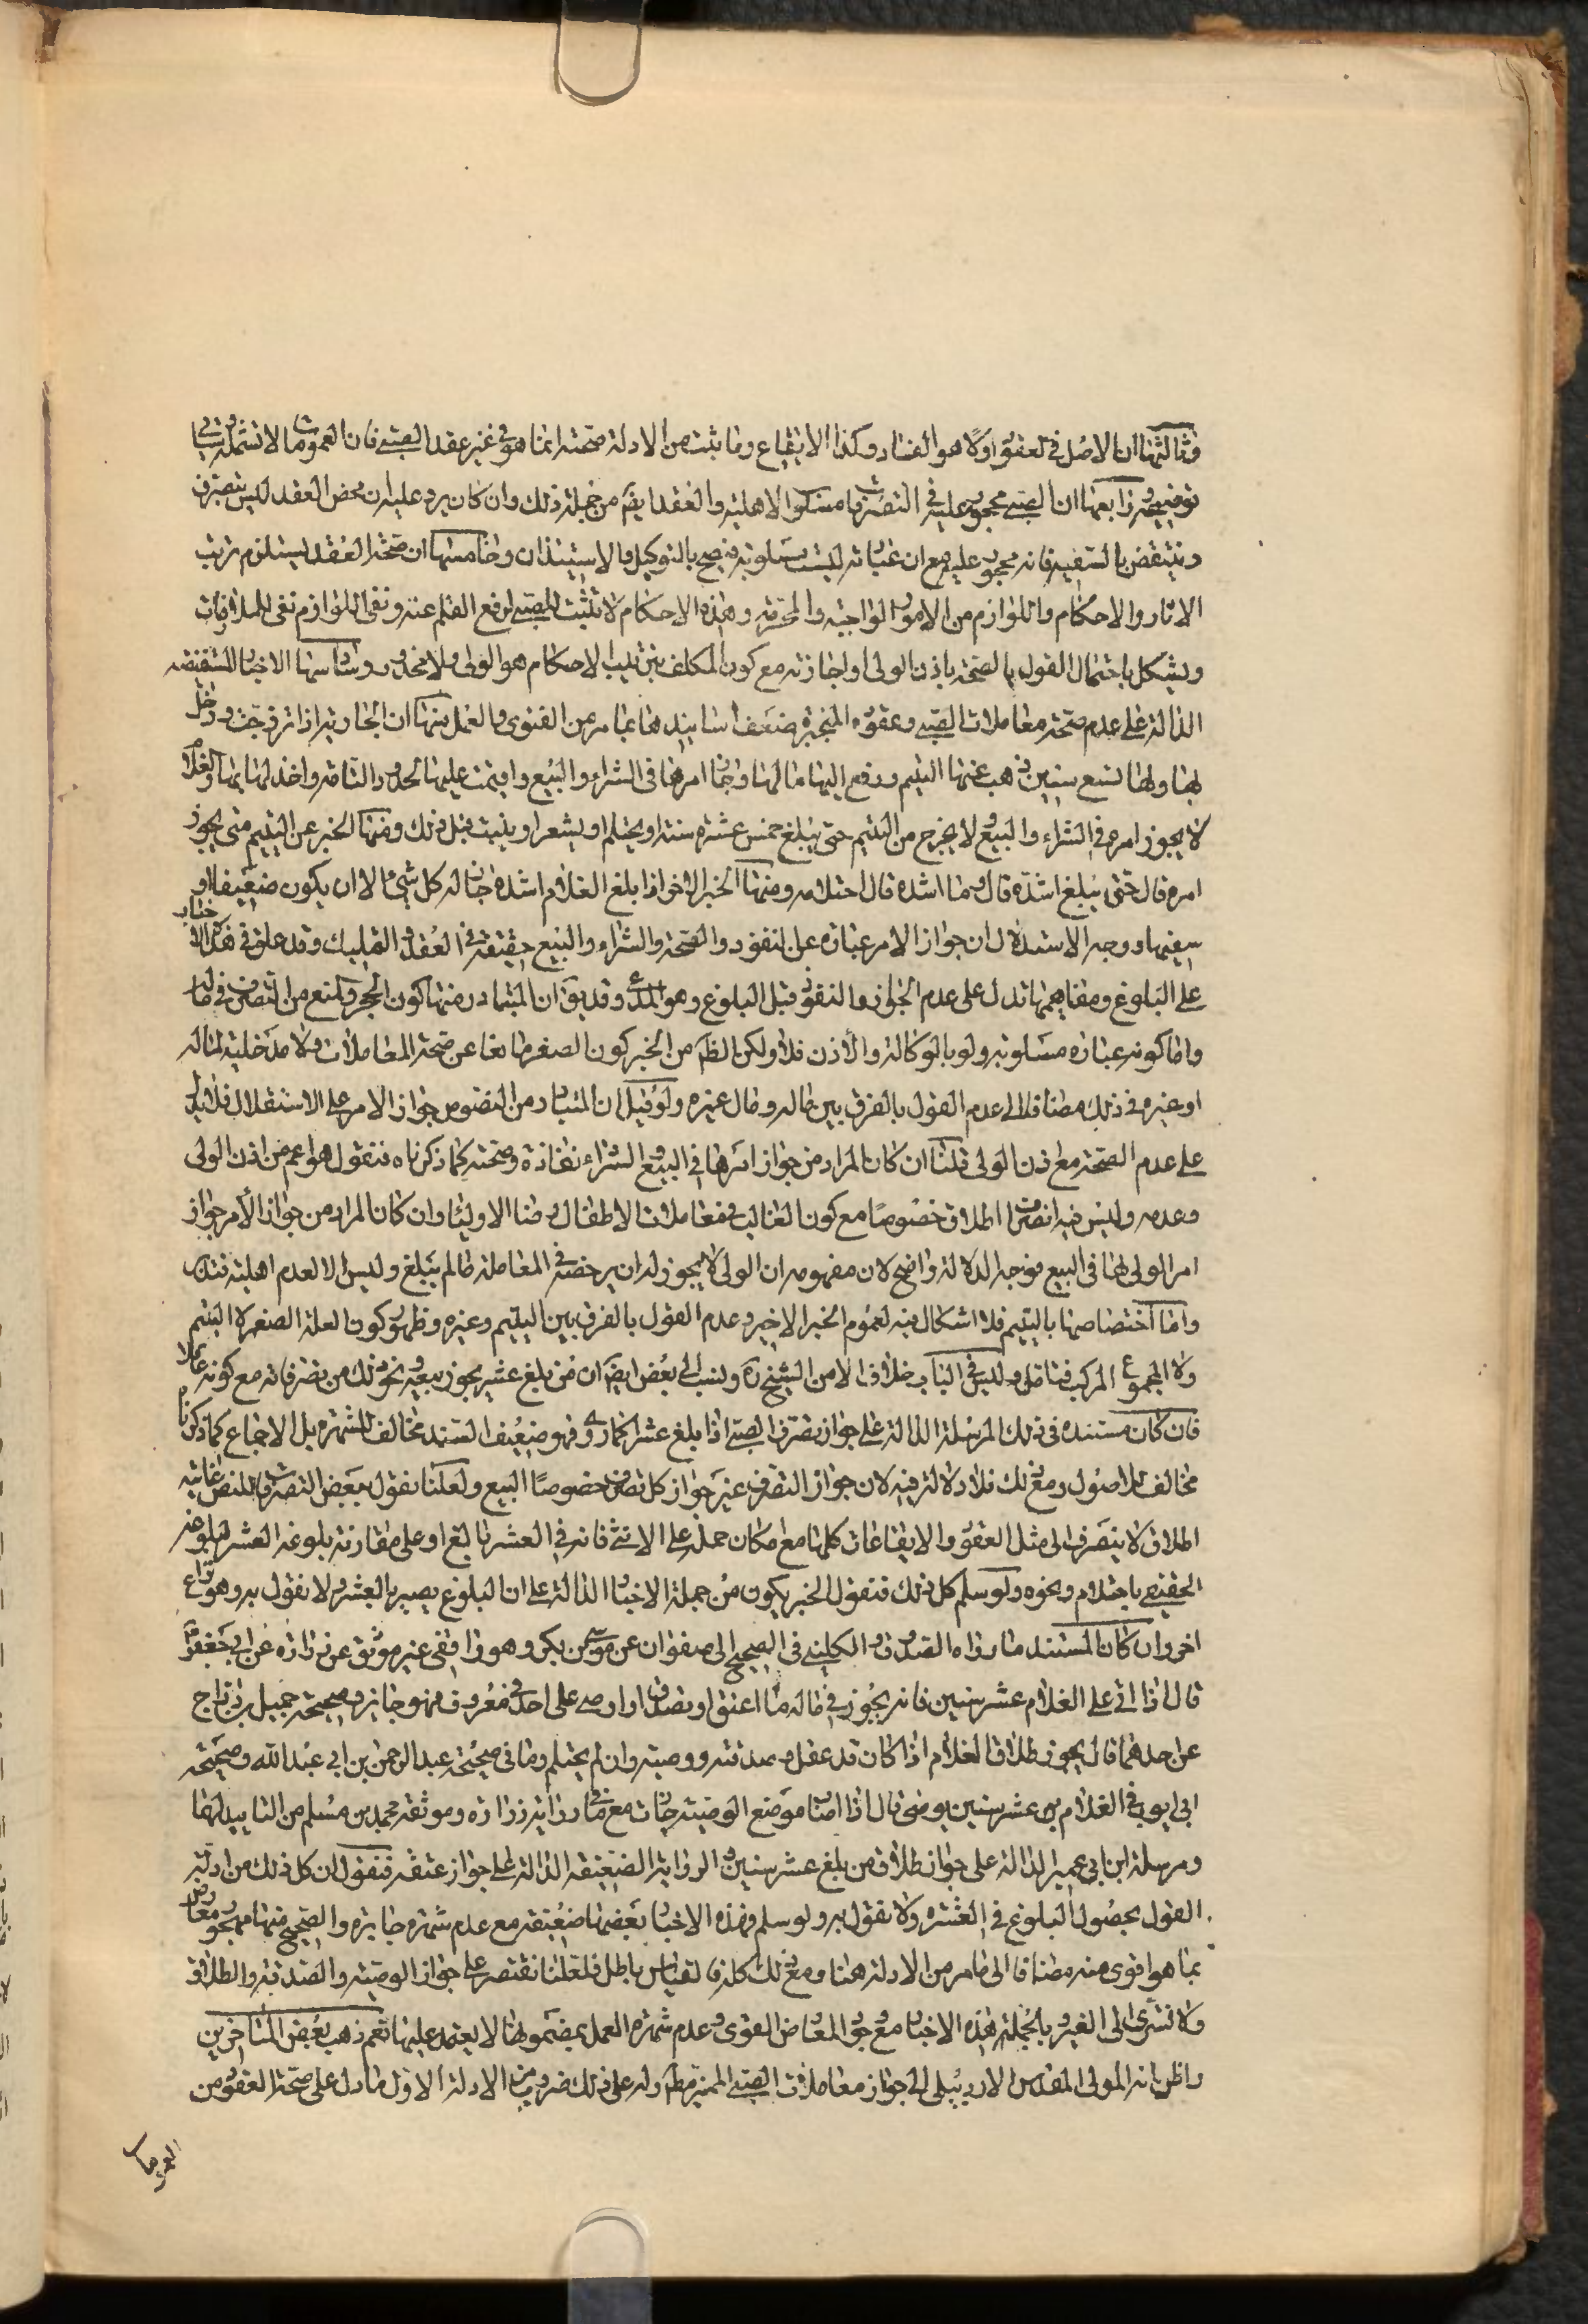 وثالثها ان الاصل في العقود اولا هو الفساد وكذا الايقاع وما ثبت من الادلة صحته انما هو في غير عقد الصبي فان العمومات لا تشمله وسياتي
توضيحه ورابعها ان الصبي محجور عليه في التصرفات مسلوب الاهلية والعقد ايضا من جملة ذلك وان كان يرد عليه ان محض العقد ليس بتصرف
وينتقض بالسفيه فانه محجور عليه مع ان عباراته ليست بمسلوبة فيصح بالتوكيل والاستيذان وخامسها ان صحة العقد يستلزم ترتب
الاثار والاحكام واللوازم من الامور الواجبة والمحرمة وهذه الاحكام لا تثبت للصبي لرفع القلم عنه ونفي اللوازم نفي للملزومات
ويشكل باحتمال القول بالصحة باذن الولي او اجازته مع كون المكلف بترتيب الاحكام هو الولي ولا محذور وسادسها الاخبار المستفيضه
الدالة على عدم صحة معاملات الصبي وعقوده المنجبرة ضعف اسانيدها بما مر من الفتوى والعمل منها ان الجارية اذا تزوجت ودخل
بها ولها تسع سنين ذهب عنها اليتم ودفع اليها مالها وجاز امرها في الشراء والبيع واقيمت عليها الحدود التامة واخذ لها بها والغلام
لا يجوز امره في الشراء والبيع لا يخرج من اليتم حتى يبلغ خمس عشرة سنة او يحتلم او يشعر او ينبت قبل ذلك ومنها الخبر عن اليتيم متى يجوز
امره قال حتى يبلغ اشده قال وما اشده قال احتلامه ومنها الخبر الاخر اذا بلغ الغلام اشده جاز له كل شيء الا ان يكون ضعيفا او
سفيها ووجه الاستدلال ان جواز الامر عبارة عن النفوذ والصحة والشراء والبيع حقيقة في العقد والتمليك وقد علق في هذه الاخبار
على البلوغ ومفاهيمها تدل على عدم الجواز والنفوذ قبل البلوغ وهو المدعى وقد يق ان المتبادر منها كون الحجر والمنع من التصرف في ماله
واما كونه عبارة مسلوبة ولو بالوكالة والاذن فلا ولكن الظ من الخبر كون الصغر مانعا عن صحة المعاملات ولا مدخلية لماله
او غيره في ذلك مضافا الى عدم القول بالفرق بين ماله ومال غيره ولو قيل ان المتبادر من النصوص جواز الامر على الاستقلال فلا يدل
على عدم الصحة مع اذن الولي قلنا ان كان المراد من جواز امرها في البيع والشراء نفاذه وصحته كما ذكرناه فنقول هو اعم من اذن الولي
وعدمه وليس فيه انصراف اطلاق خصوصا مع كون الغالب في معاملات الاطفال رضا الاولياء وان كان المراد من جواز الأمر جواز
امر الولي لها في البيع فوجه الدلالة واضح لان مفهومه ان الولي لا يجوز له ان يرخصه في المعاملة ما لم يبلغ وليس الا لعدم اهليته فتدبر
واما اختصاصها باليتيم فلا اشكال فيه لعموم الخبر الاخير وعدم القول بالفرق بين اليتيم وغيره وظهور كون العلة الصغر لا اليتم
ولا المجموع المركب فتامل وليس في الباب خلاف الا من الشيخ ره ونسب الى بعض ايضا ان من بلغ عشر يجوز بيعه ونحو ذلك من تصرفاته مع كونه عاقلا
فان كان مستنده في ذلك المرسلة الدالة على جواز تصرف الصبي اذا بلغ عشرا كما روي فهو ضعيف السند مخالف للشهرة بل الاجماع كما ذكرنا
مخالف للاصول ومع ذلك فلا دلالة فيه لان جواز التصرف غير جواز كل تصرف خصوصا البيع ولعلنا نقول ببعض التصرفات للنص غايته
اطلاق لا ينصرف الى مثل العقود والايقاعات كلها مع امكان حمله على الانثى فانه في العشر بالغ او على مقارنة بلوغه العشر لبلوغه
الحقيقي باحتلام ونحوه ولو سلم كل ذلك فنقول الخبر يكون من جملة الاخبار الدالة على ان البلوغ يصير بالعشر ولا نقول به وهو نزاع
اخر وان كان المستند ما رواه الصدوق والكليني في الصحيح الى صفوان عن موسى بن بكر وهو واقفي غير موثق عن زرارة عن ابي جعفر ع
قال اذا اتى على الغلام عشر سنين فانه يجوز في ماله ما اعتق او تصدق او اوصى على احد في معروف فهو جايز وصحيحة جميل بن دراج
عن احدهما قال يجوز طلاق الغلام اذا كان قد عقل وصدقته ووصيته وان لم يحتلم وما في صحيحة عبد الرحمن بن ابي عبد الله وصحيحة
ابي ايوب في الغلام بن عشر سنين يوصي قال اذا اصاب موضع الوصية جازت مع ما في رواية زرارة وموثقة محمد بن مسلم من التاييد لها
ومرسلة ابن ابي عمير الدالة على جواز طلاق من بلغ عشر سنين والرواية الضعيفة الدالة على جواز عتقه فنقول ان كل ذلك من ادلة
القول بحصول البلوغ في العشرة ولا نقول به ولو سلم فهذه الاخبار بعضها ضعيفة مع عدم شهرة جابرة والصحيح منها مهجور معارض
بما هو اقوى منه مضافا الى ما مر من الادلة هنا ومع ذلك كله فالقياس باطل فلعلنا نقتصر على جواز الوصية والصدقة والطلاق
ولا نسري الى الغير وبالجملة هذه الاخبار مع وجود المعارض القوى وعدم شهرة العمل بمضمونها لا يعتمد عليها نعم ذهب بعض المتاخرين
واظن انه المولى المقدس الاردبيلي الى جواز معاملات الصبي المميز مط وله على ذلك ضروب من الادلة الاول ما دل على صحة العقود من
العمومات